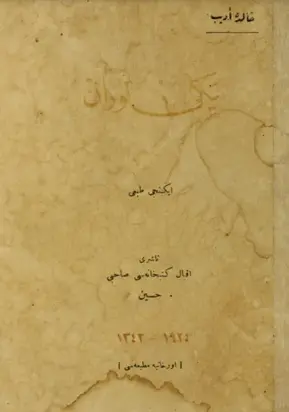 خالده أديب
يكى توران
ايكنجى طبعى
ناشرى
اقبال كتبخانه‌سى صاحبى
حسين
١٩٢٤ – ١٣٤٢
[ اورخانيه مطبعه‌سى ]